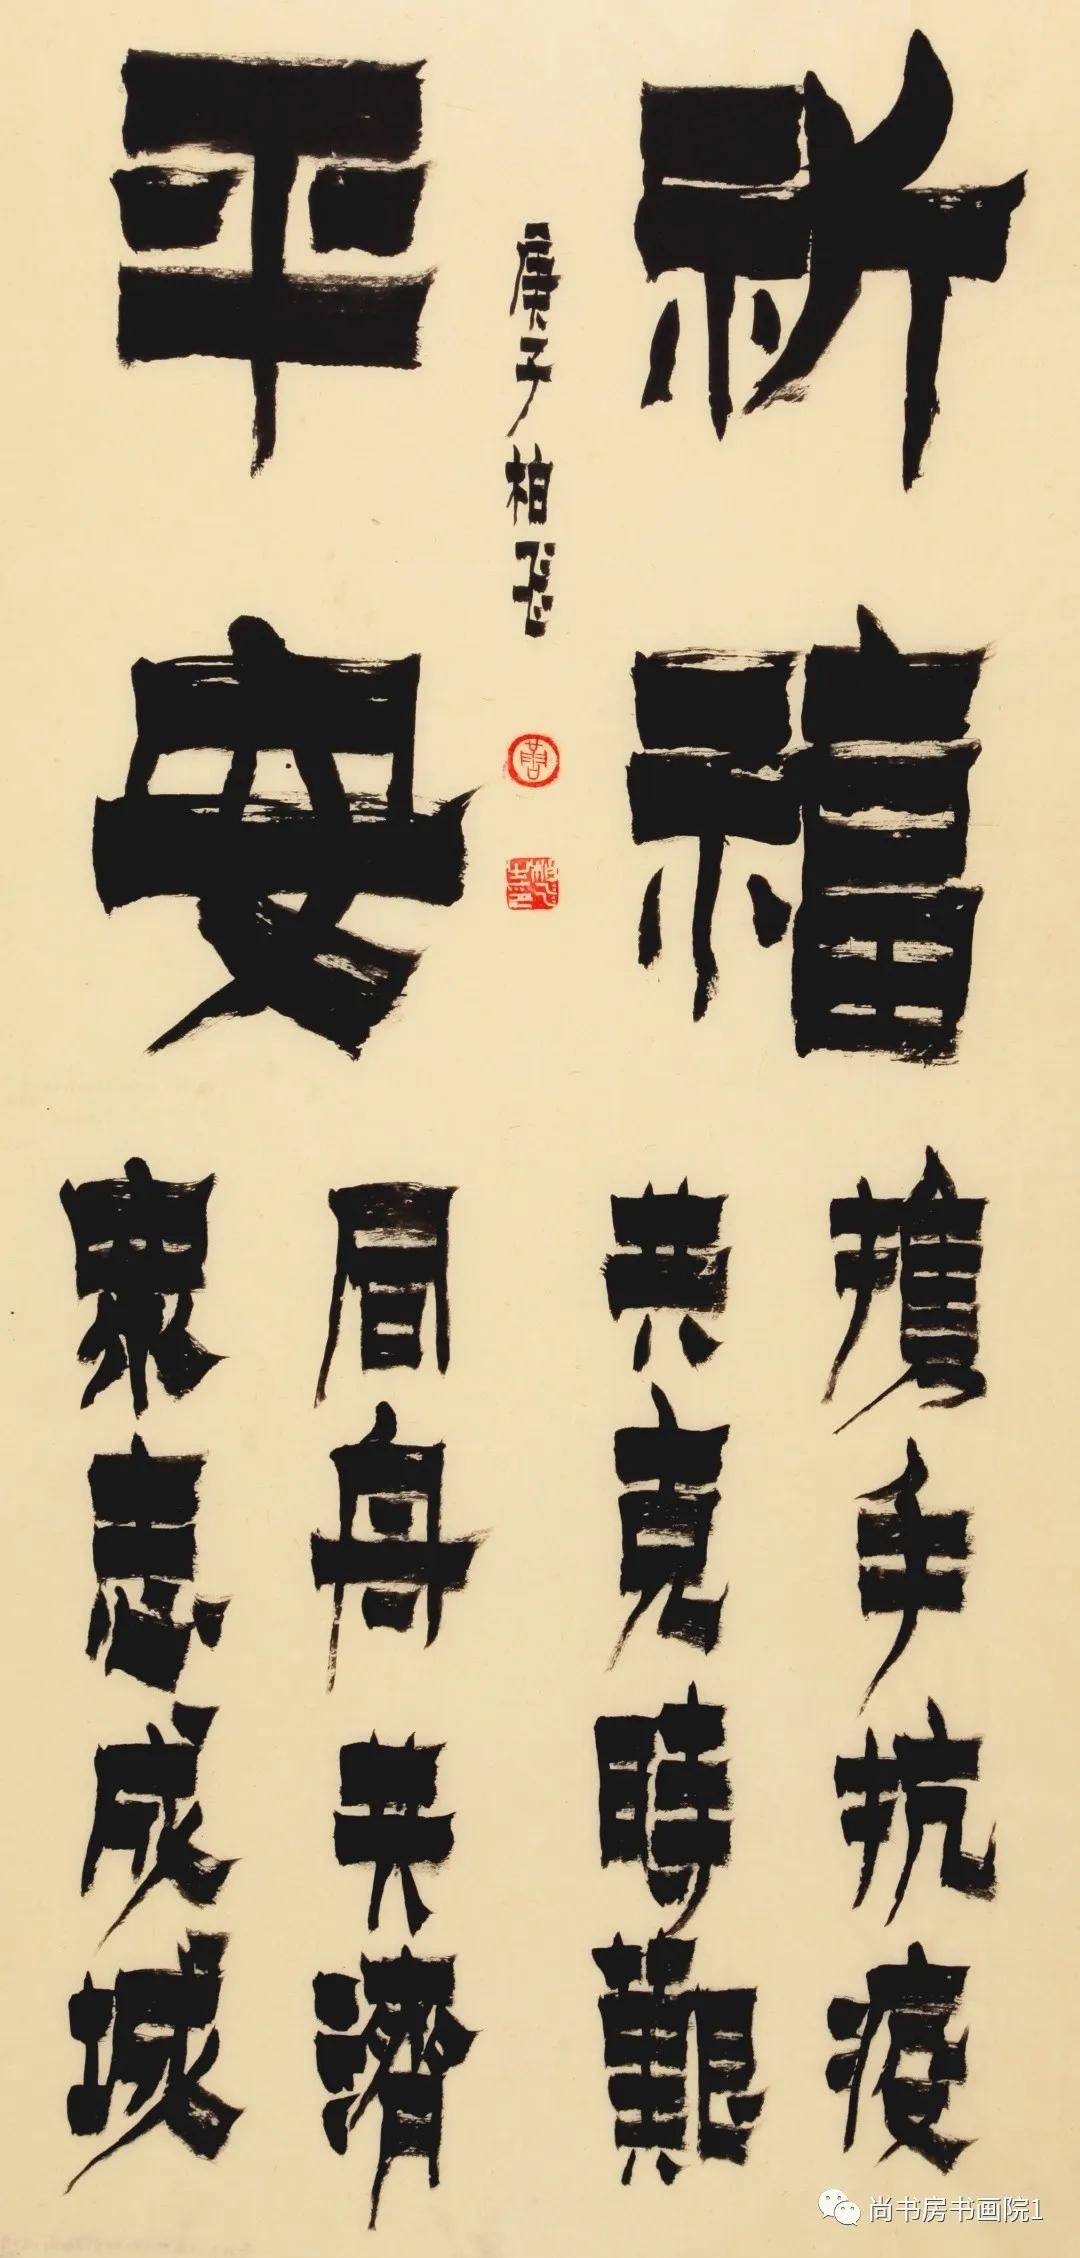 祈福
平安
庚子柏飛
攜手抗疫
共克時艱
同舟共濟
衆志成城
尚书房书画院1